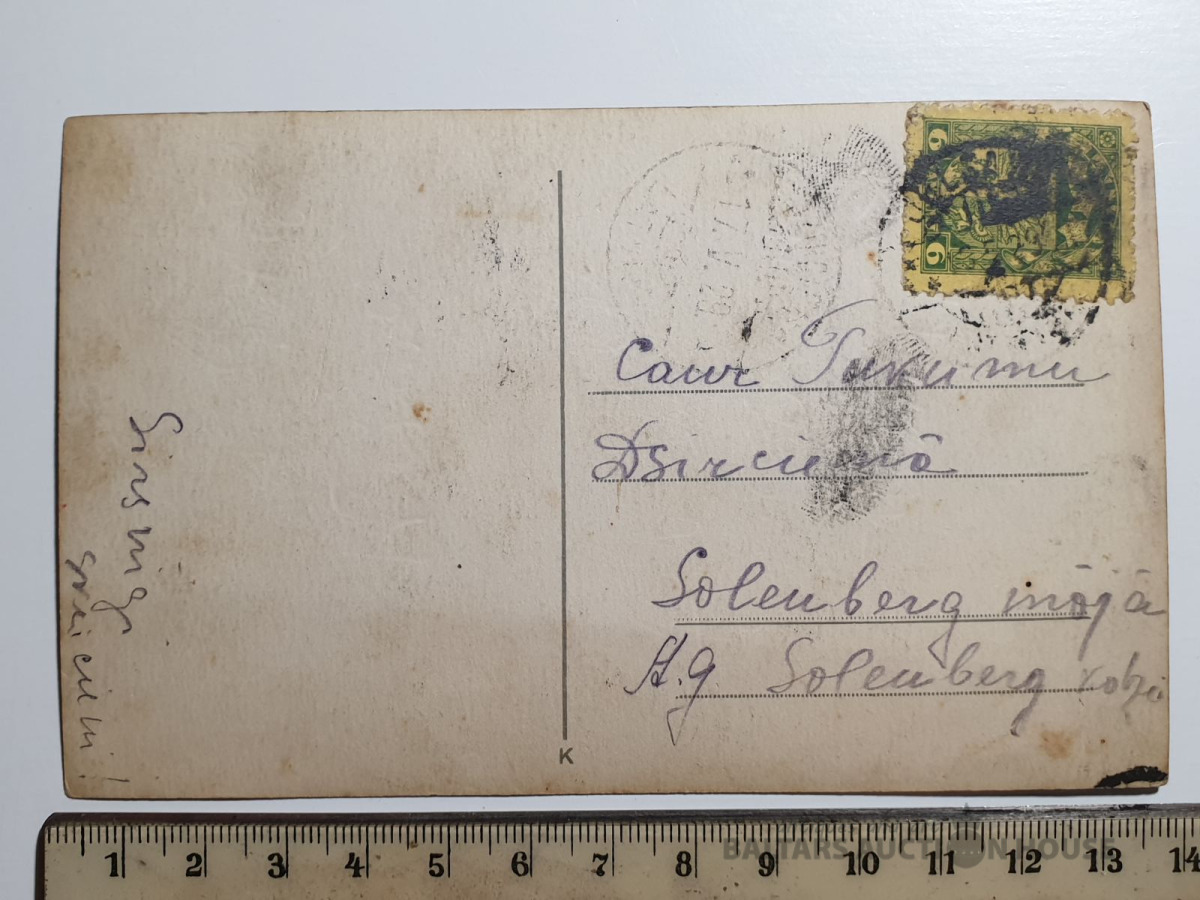 Sirsnigs
sveiciens!
6
6
Caur Tukumu
Dsirciemā
Solenberg mājā
A.g Solenberg
K
1 2 3 4 5 6 7 8 9 10 11 12 13 14
BALTARS AUCTION HOUSE